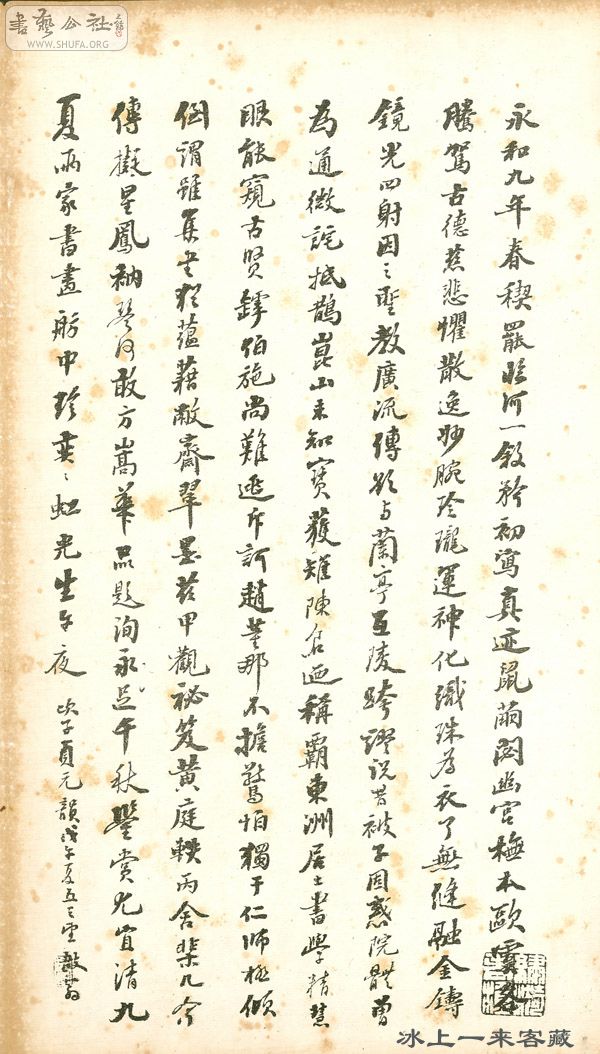 書藝公社
WWW.SHUFA.ORG
永和九年春稧罷臨河一敘矜初寫真迹鼠繭閟幽宮橅本歐虞各
騰駕古德慈悲懼散逸妙腕玲瓏運神化織珠為衣了無縫融金鑄
鏡光四射因之聖教廣流傳欲與蘭亭互陵跨謬說昔被子固惑院體曾
為通微詫抵鵲崑山未知寶獲雉陳倉迺稱霸東洲居士書學精慧
眼能窺古賢罅伯施尚難逃斥訶趙董那不擔驚怕獨于仁師極傾
倒謂雖集字猶蘊藉敝齋翠墨茲甲觀祕笈黃庭軼丙舍棐几今
傳戲星鳳衲琴何敢方嵩華品題洵永足千秋鑒賞尤宜清九
夏兩家書畫舫中珍奕奕虹光生午夜 次子貞元韻戊午夏五之望
冰上一来客藏